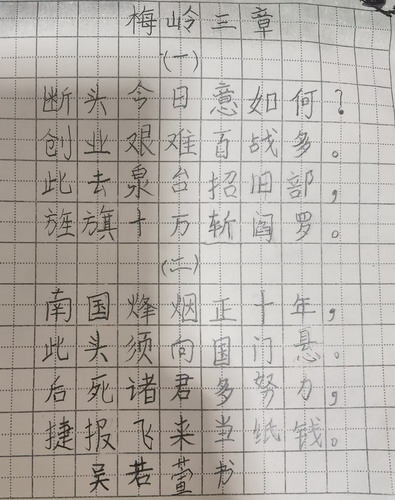 梅岭三章
(一)
断头今日意如何?
创业艰难百战多。
此去泉台招旧部,
旌旗十万斩阎罗。
(二)
南国烽烟正十年,
此头须向国门悬。
后死诸君多努力,
捷报飞来当纸钱。
吴若萱书